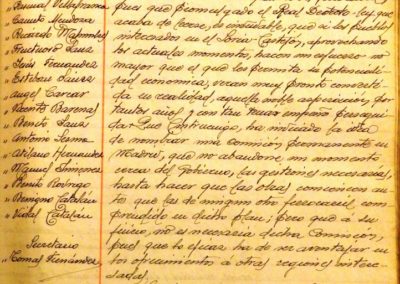 " Manuel Villafranca
" Camilo Mendoza
" Ricardo Mahomeles
" Fructuoso Sanz
" Jesús Fernandez
" Esteban Lainez
" Angel Carcar
" Vicente Barenas
" Benito Sanz
" Antonio Lerma
" Atilano Hernandez
" Manuel Jimenez
" Benito Rodrigo
" Benigno Catalán
" Vidal Catalán
Secretario
" Tomas Fernandez
pues que promulgado el Real Decreto-ley que
acaba de leerse, es indudable, que si los pueblos
interesados en el Soria Castejón, aprovechando
los actuales momentos, hacen un esfuerzo
mayor que el que les permita su potencialidad
económica, verán muy pronto convertida
en realidad, aquella noble aspiración, por
tantos años y con tan tenaz empeño perseguida.
Que Cintruenigo, ha iniciado la idea
de nombrar una comisión, permanente en
Madrid, que no abandone, ni momento
cerca del Gobierno, las gestiones necesarias,
hasta hacer que las obras comiencen antes
que las de ningun otro ferrocarril, comprendido
en dicho plan; pero que á su
juicio, no es necesaria dicha comisión,
pues que lo eficaz ha de ser aventajar en
los ofrecimientos á otras regiones interesadas.